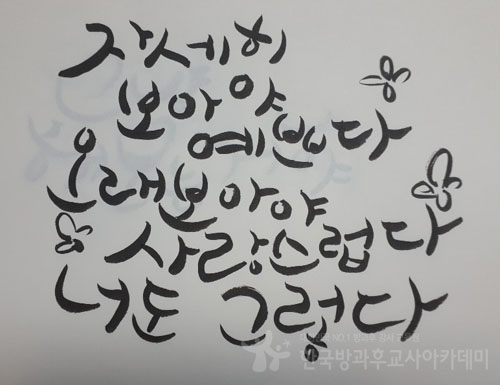 자세히
보아야
예쁘다
오래보아야
사랑스럽다
너도 그렇다
한국방과후교사아카데미